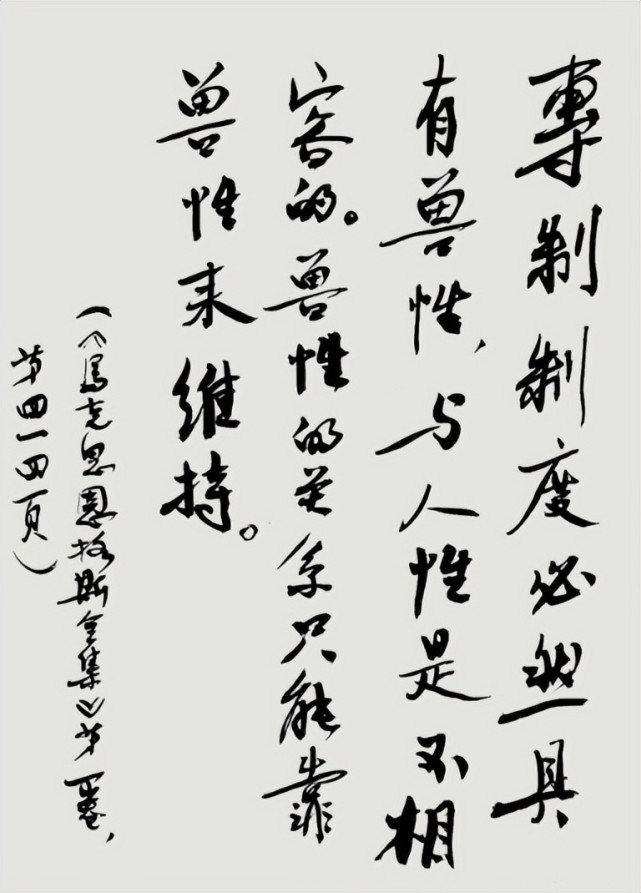 專制制度必然具
有兽性，与人性是不相
容的。兽性的关系只能靠
兽性来维持。
（《馬克思恩格斯全集》第一卷，
第四一四頁）